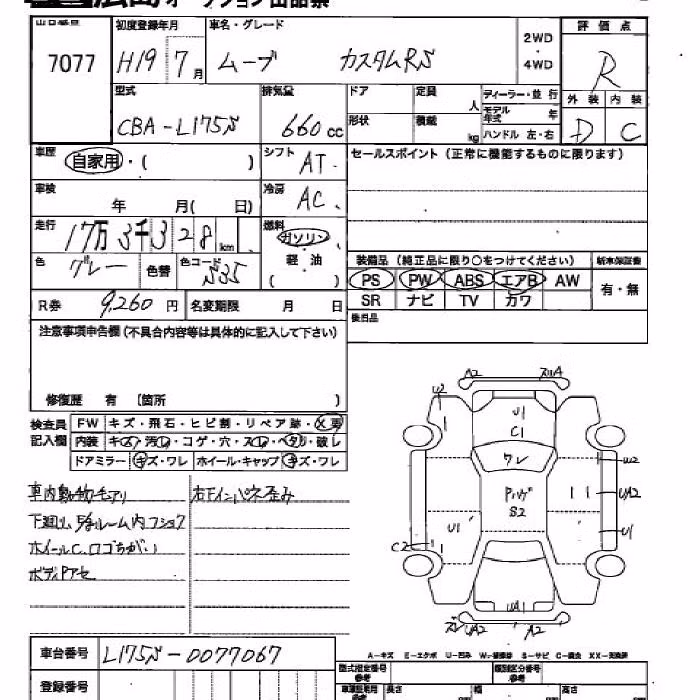 広島オークション出品票
出品番号 7077
初度登録年月 H19 7月
車名・グレード ムーブ カスタムRS
2WD・4WD
評価点 R
型式 CBA-L175S
排気量 660cc
ドア
定員 人
形状
積載 kg
ディーラー・並行
モデル年式 年
ハンドル 左・右
外装 D
内装 C
車歴 自家用・( )
シフト AT
セールスポイント(正常に機能するものに限ります)
車検 年 月( 日)
冷房 AC
走行 17万3千328km
燃料 ガソリン
軽・油
( )
色 グレー
色替
色コード S35
装備品(純正品に限り○をつけてください)
新車保証書
PS PW ABS エアB AW
有・無
SR ナビ TV カワ
R券 9,260円
名変期限 月 日
後日品
注意事項申告欄(不具合内容等は具体的に記入して下さい)
修復歴 有 〔箇所 〕
検査員記入欄
FW キズ・飛石・ヒビ割・リペア跡・X要
内装 キズ・汚レ・コゲ・穴・スレ・ヘタリ・破レ
ドアミラー キズ・ワレ ホイール・キャップ キズ・ワレ
右フインパネ歪み
ホイールC.ロゴちがい
ボディアセ
A2
U2
U1
C1
ワレ
S2
W2
UA2
U1
U1
C2
UA1
UA2
A2
A-キズ E-エクボ U-凹み W-補修跡 S-サビ C-腐食 XX-交換済
車台番号 L175S-0077067
登録番号
型式指定番号
参考
類別区分番号
参考
長さ
幅
高さ